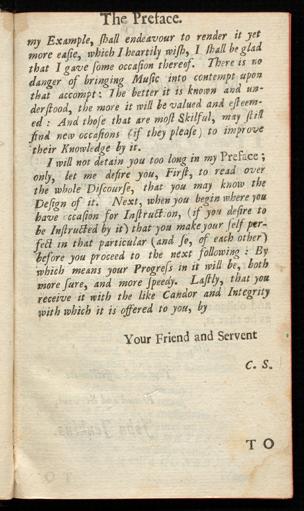 The Preface.
my Example, ſhall endeavour to render it yet
more eaſie, which I heartily wiſh, I ſhall be glad
that I gave ſome occaſion thereof. There is no
danger of bringing Muſic into contempt upon
that accompt: The better it is known and un-
derſtood, the more it will be valued and eſteem-
ed: And thoſe that are moſt Skilful, may ſtill
find new occaſions (if they pleaſe) to improve
their Knowledge by it.
I will not detain you too long in my Preface;
only, let me deſire you, Firſt, to read over
the whole Diſcourſe, that you may know the
Deſign of it. Next, when you begin where you
have ccaſion for Inſtruct on, (if you deſire to
be Inſtructed by it) that you make your ſelf per-
fect in that particular (and ſo, of each other)
before you proceed to the next following: By
which means your Progreſs in it will be, both
more ſure, and more ſpeedy. Laſtly, that you
receive it with the like Candor and Integrity
with which it is offered to you, by
Your Friend and Servent
C. S.
TO